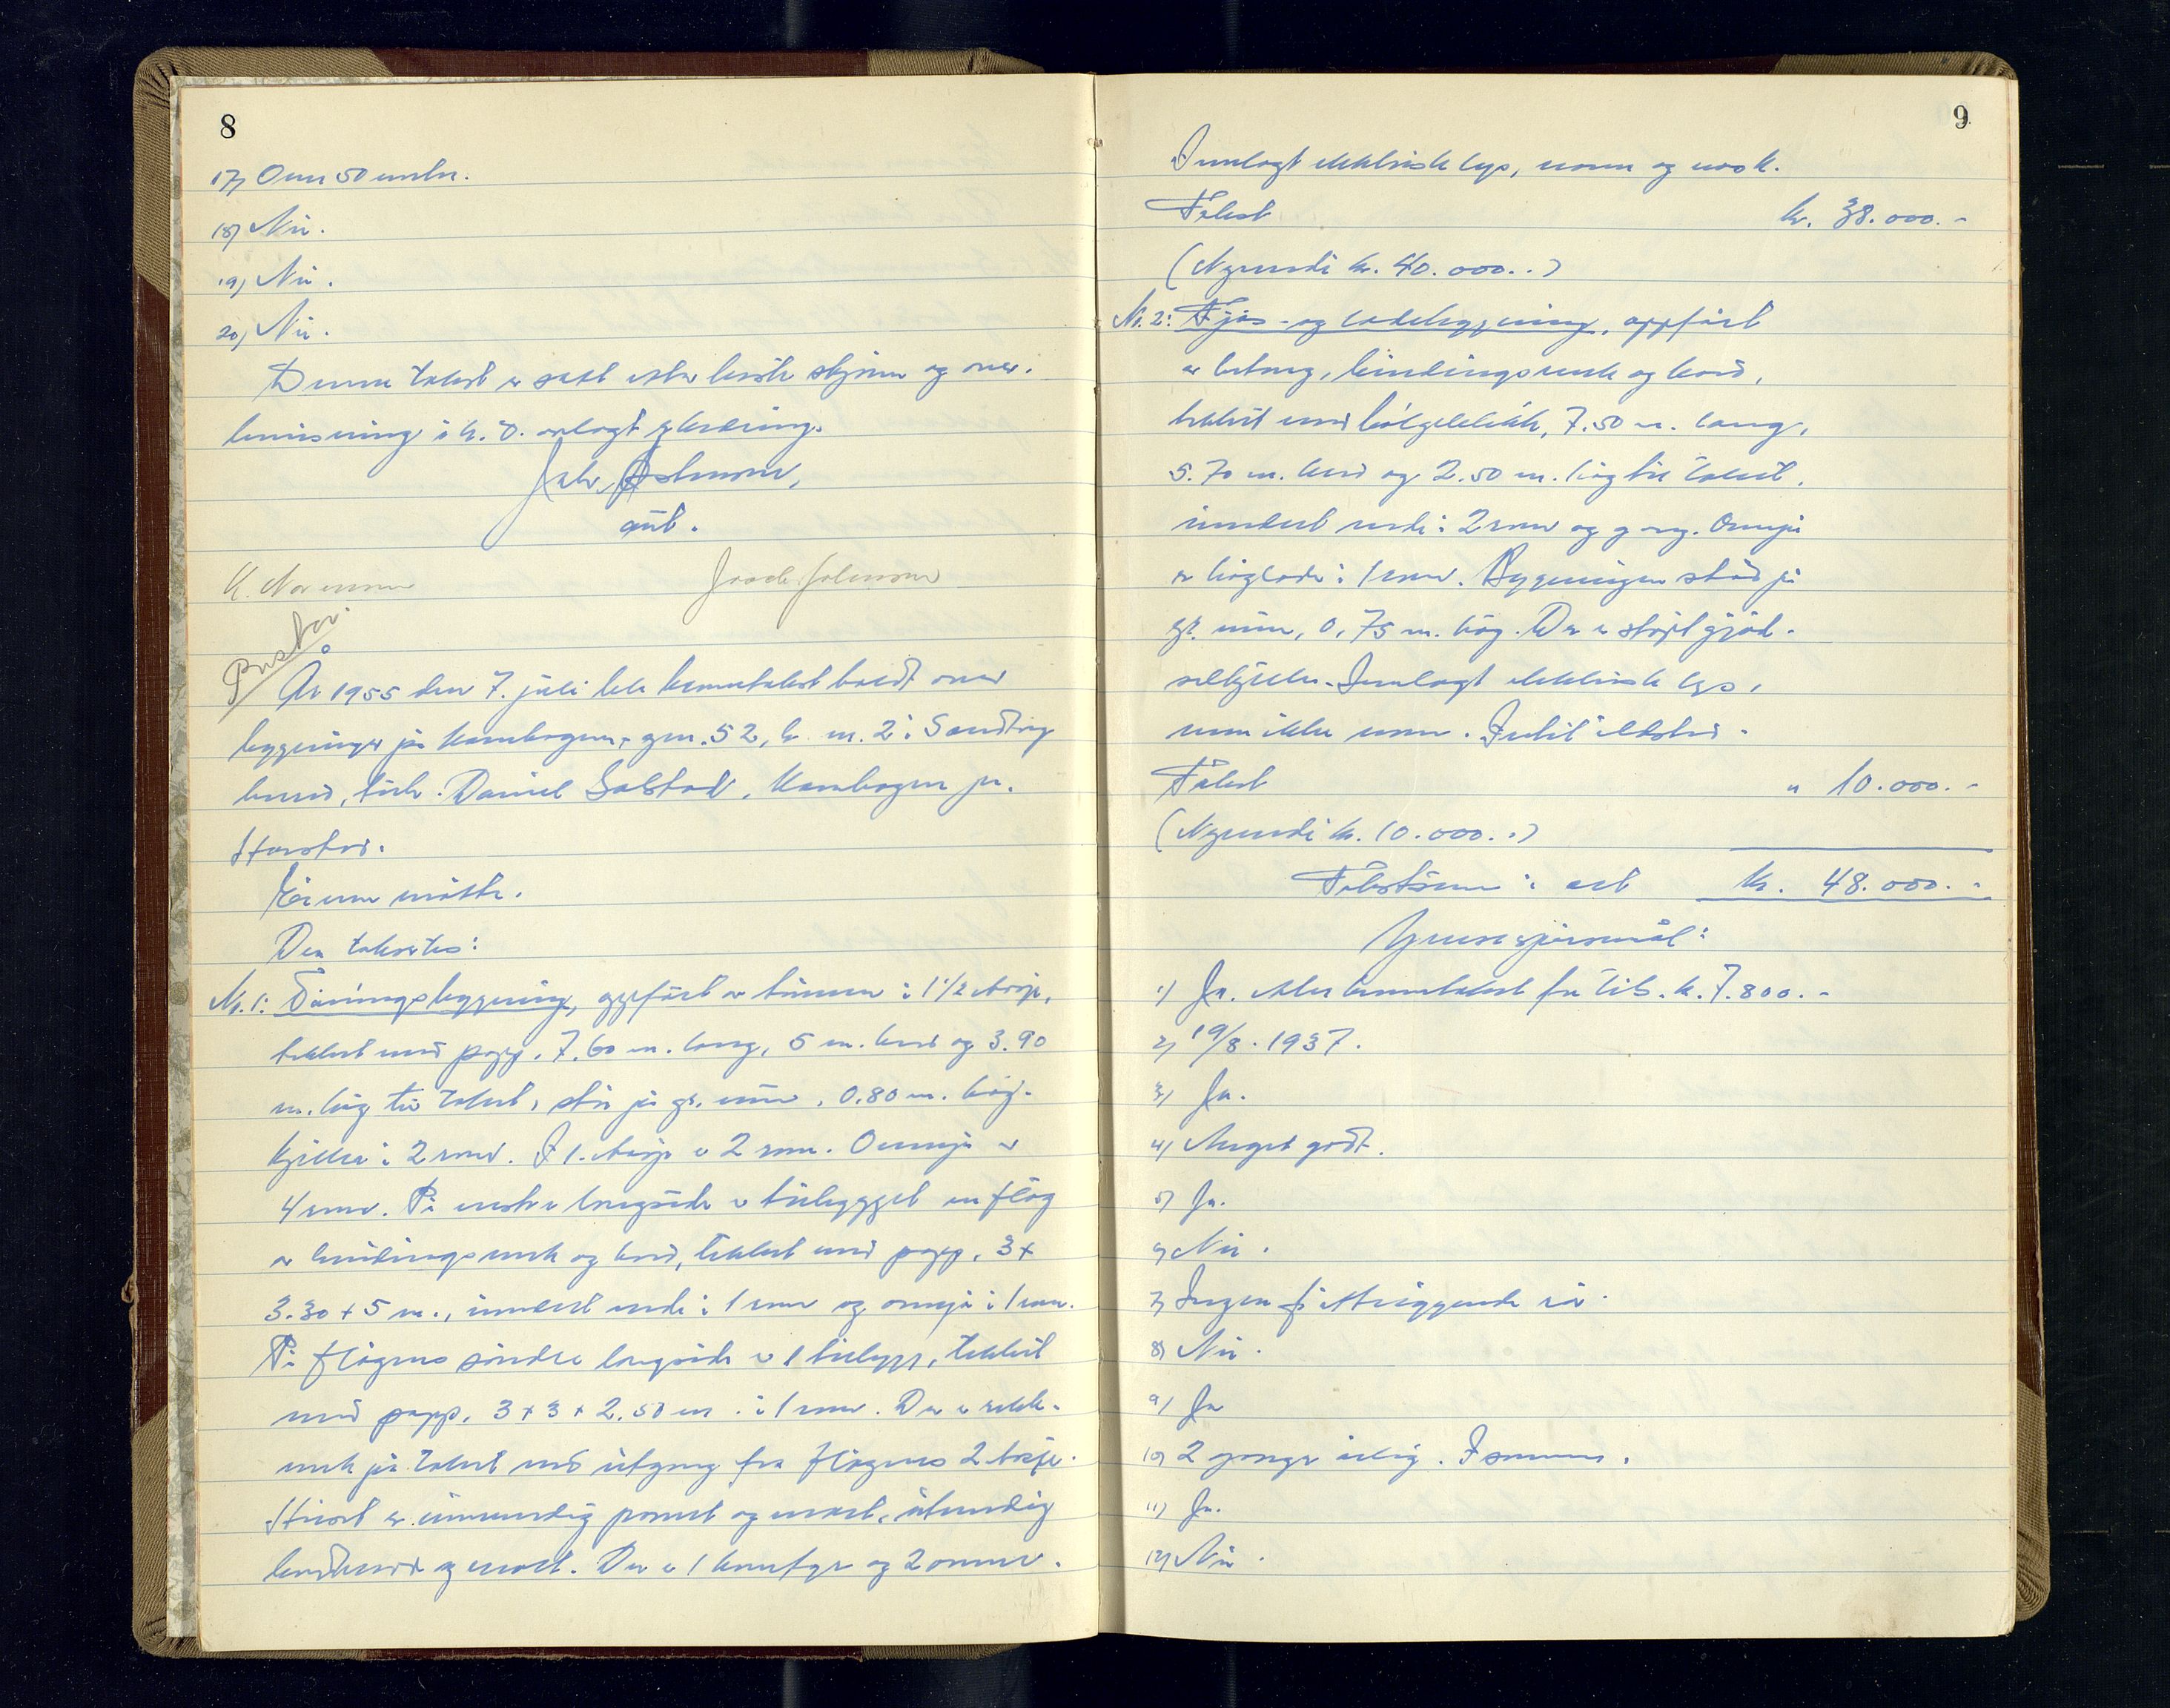 8
17) Over 50 meter.
18) Nei.
19) Nei.
20) Nei.
Denne takst er satt etter beste skjønn og over-
bevisning i h. t. avlagt erklæring.
Johnsen,
avt.
Prestbø.
År 1955 den 7. juli ble branntakst holdt over
bygninger på Kanebogen, gnr. 52, br. nr. 2 i Sandtorg
herred, tilh. Daniel Solstad, Kanebogen pr.
Harstad.
Eieren møtte.
Den taksertes:
Nr. 1: Våningsbygning, oppført av tømmer i 1 1/2 etasje,
tekket med papp, 7.60 m. lang, 5 m. bred og 3.90
m. høg til taket, står på gr. mur, 0.80 m. høg.
Kjeller i 2 rom. I 1. etasje er 2 rom. Ovenpå er
4 rom. På vestre langside er tilbygget en fløg
av bindingsverk og bord, tekket med papp, 3 x
3.30 x 5 m., inndelt nede i 1 rom og ovenpå i 1 rom.
På fløgens søndre langside er 1 tilbygg, tekket
med papp, 3 x 3 x 2.50 m. i 1 rom. Der er rekk-
verk på taket med utgang fra fløgens 2 etasje.
Huset er innvendig panelt og malt, utvendig
bordkledd og malt. Der er 1 komfyr og 2 ovner.
9
Innlagt elektrisk lys, vann og vask.
Takst kr. 38.000.-
(Nyverdi kr. 40.000.-)
Nr. 2: Fjøs- og ladebygning, oppført
av betong, bindingsverk og bord,
tekket med bølgeblikk, 7.50 m. lang,
5.70 m. bred og 2.50 m. høg til taket,
inndelt nede i 2 rom og gang. Ovenpå
er høglade i 1 rom. Bygningen står på
gr. mur, 0,75 m. høg. Der er støpt gjød-
selkjeller. Innlagt elektrisk lys,
men ikke vann. Intet ildsted.
Takst " 10.000.-
(Nyverdi kr. 10.000.-)
Takstsum i alt kr. 48.000.-
1) Ja. Eldre branntakst før til kr. 7.800.-
2) 19/8. 1937.
3) Ja.
4) Meget godt.
5) Ja.
6) Nei.
7) Ingen
8) Nei.
9) Ja
10) 2 ganger årlig. I sommer.
11) Ja.
12) Nei.